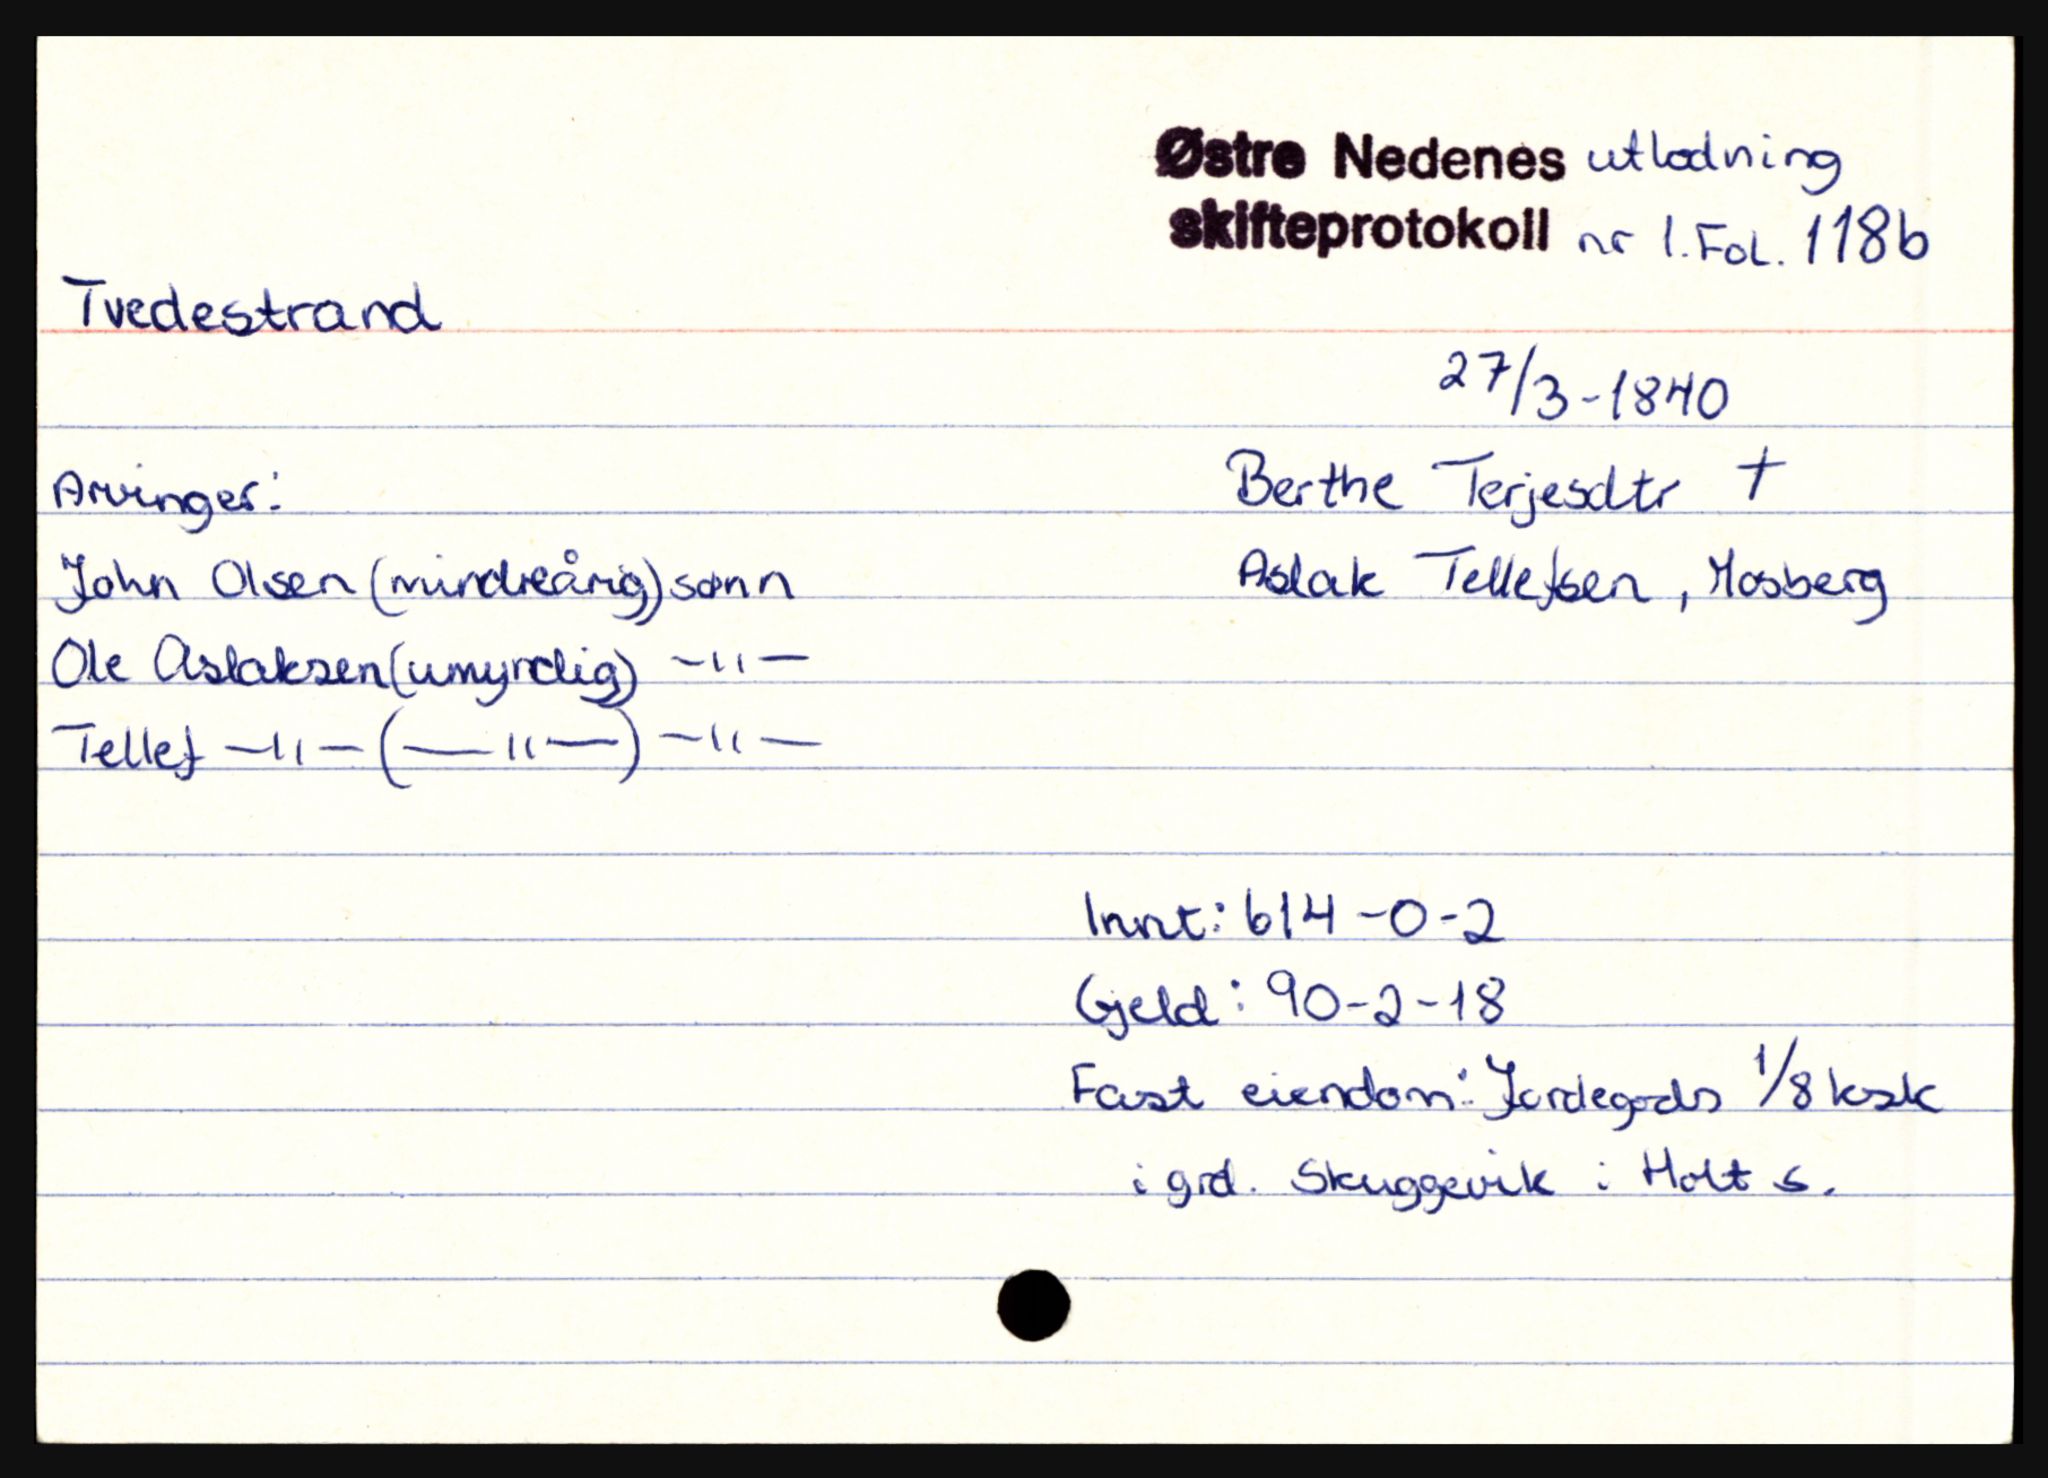 Østre Nedenes utlodning
skifteprotokoll nr 1. Fol. 118b
Tvedestrand
27/3-1840
Arvinger:
Berthe Terjesdtr †
John Olsen (mindreårig) sønn
Aslak Tellefsen, Mosberg
Ole Aslaksen (umyndig) -"-
Tellef -"- (-"-) -"-
Innt: 614-0-2
Gjeld: 90-2-18
Fast eiendom: Jordegods 1/8 ksk
i grd. Skuggevik i Holt s.